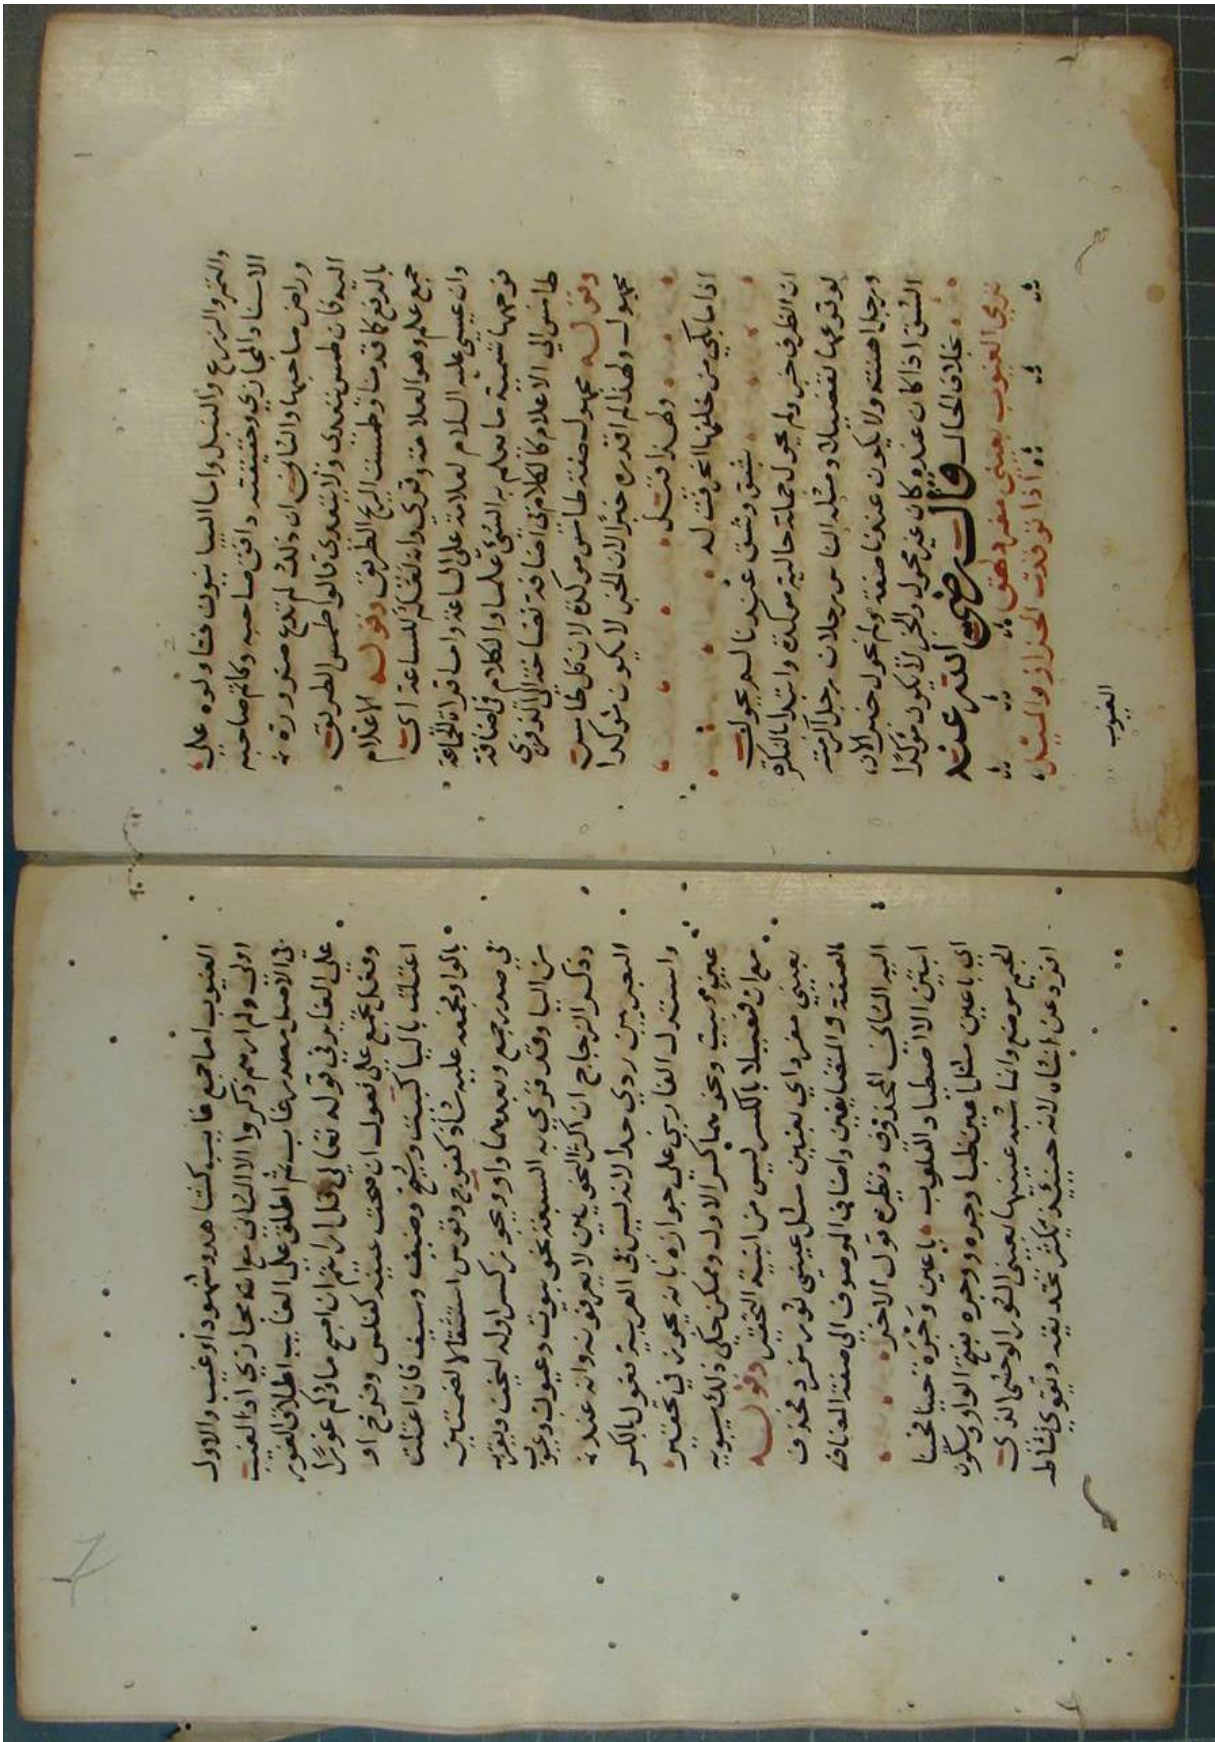 والثمر والزرع والنسل واما البيانيون فتاولوه على
الاسناد المجازي وحقيقته دافق صاحبه وكاتم صاحبه
وراض صاحبها والثاني ان ذلك لم تدع ضرورة
اليه فان طمس يتعدى ولا يتعدى قالوا طمس الطريق
بالرفع كما قدمنا وطمست الريح الطريق وقوله الاعلام
جمع علم وهو العلامة وقري وانه لعلم للساعة اي
وان عيسى عليه السلام لعلامة على الساعة واما قراة الجماعة
فوجهها تسمية ما يعلم به الشي علما والكلام في اضافة
طامس الى الاعلام كالكلام في اضافة نضاخة الى الذفرى
وقوله مجهول صفة لطامس موكدة لان كل طامس
مجهول ولهذا لم اقدره خبرا لان الخبر لا يكون موكدا
ولهذا قيل
اذا ما بكي من خلفها انحرفت له
بشق وشق عندنا لم يحول
ان الظرف خبر ولم يحول جملة حالية موكدة وابتدا بالنكرة
لوقوعها تفصيلا ومثله الناس رجلان رجل اكرمته
ورجل اهنته ولا يكون عندنا صفة ولم يحول خبر لان
الشق اذا كان عنده كان غير محول والخبر لا يكون موكدا
بخلاف الحال قال رضي الله عنه
ترمي الغيوب بعيني مفرد لهق
اذا توقدت الحزاز والميل
الغيوب
الغيوب اما جمع غايب كشاهد وشهود او غيب والاول
اولى ولم ارهم ذكروا الا الثاني مع انه مجازي اذ الغيب
في الاصل مصدر غاب ثم اطلق على الغايب اطلاق الغور
على الغاير في قوله تعالى قل ارايتم ان اصبح ماؤكم غورا
وفعل يجمع على فعول ان صحت عينه كفلس وفرخ او
اعتلت باليا كبيت وشيخ وضيف وسيف فان اعتلت
بالواو فجمعه عليه شاذ كفوج وقوس استثقالا لضمتين
في صدر جمع وبعدهما واو ويجوز كسر اوله ليخف ويقرب
من اليا وقد قري به السبعة نحو بيوت وعيون وغيوب
وذكر الزجاج ان اكثر النحويين لا يعرفونه وانه عند
البصريين ردي جدا لانه ليس في العربية فعول بالكسر
واستدل الفارسي على جوازه بانه يجوز في تحقير
عين وبيت ونحوهما كسر الاول وممكن حكى ذلك سيبويه
مع ان فعيلا بالكسر ليس من ابنية التحقير وقوله
بعيني مفرد اي بعينين مثل عيني ثور مفرد فحذف
الصفة والمتضايفين واضاف الموصوف الى صفة المضاف
اليه الثاني المحذوف ونظيره قول الاخر
ابيتن الا اصطياد القلوب باعين وجرة حينا فحينا
اي باعين مثل اعين ظبا وجرة ووجرة بفتح الواو وسكون
الجيم موضع وانما شبه عينيها بعيني الثور الوحشي الذي
افرد عن انثاه لانه حينئذ يكثر تحديقه ويقوى نشاطه